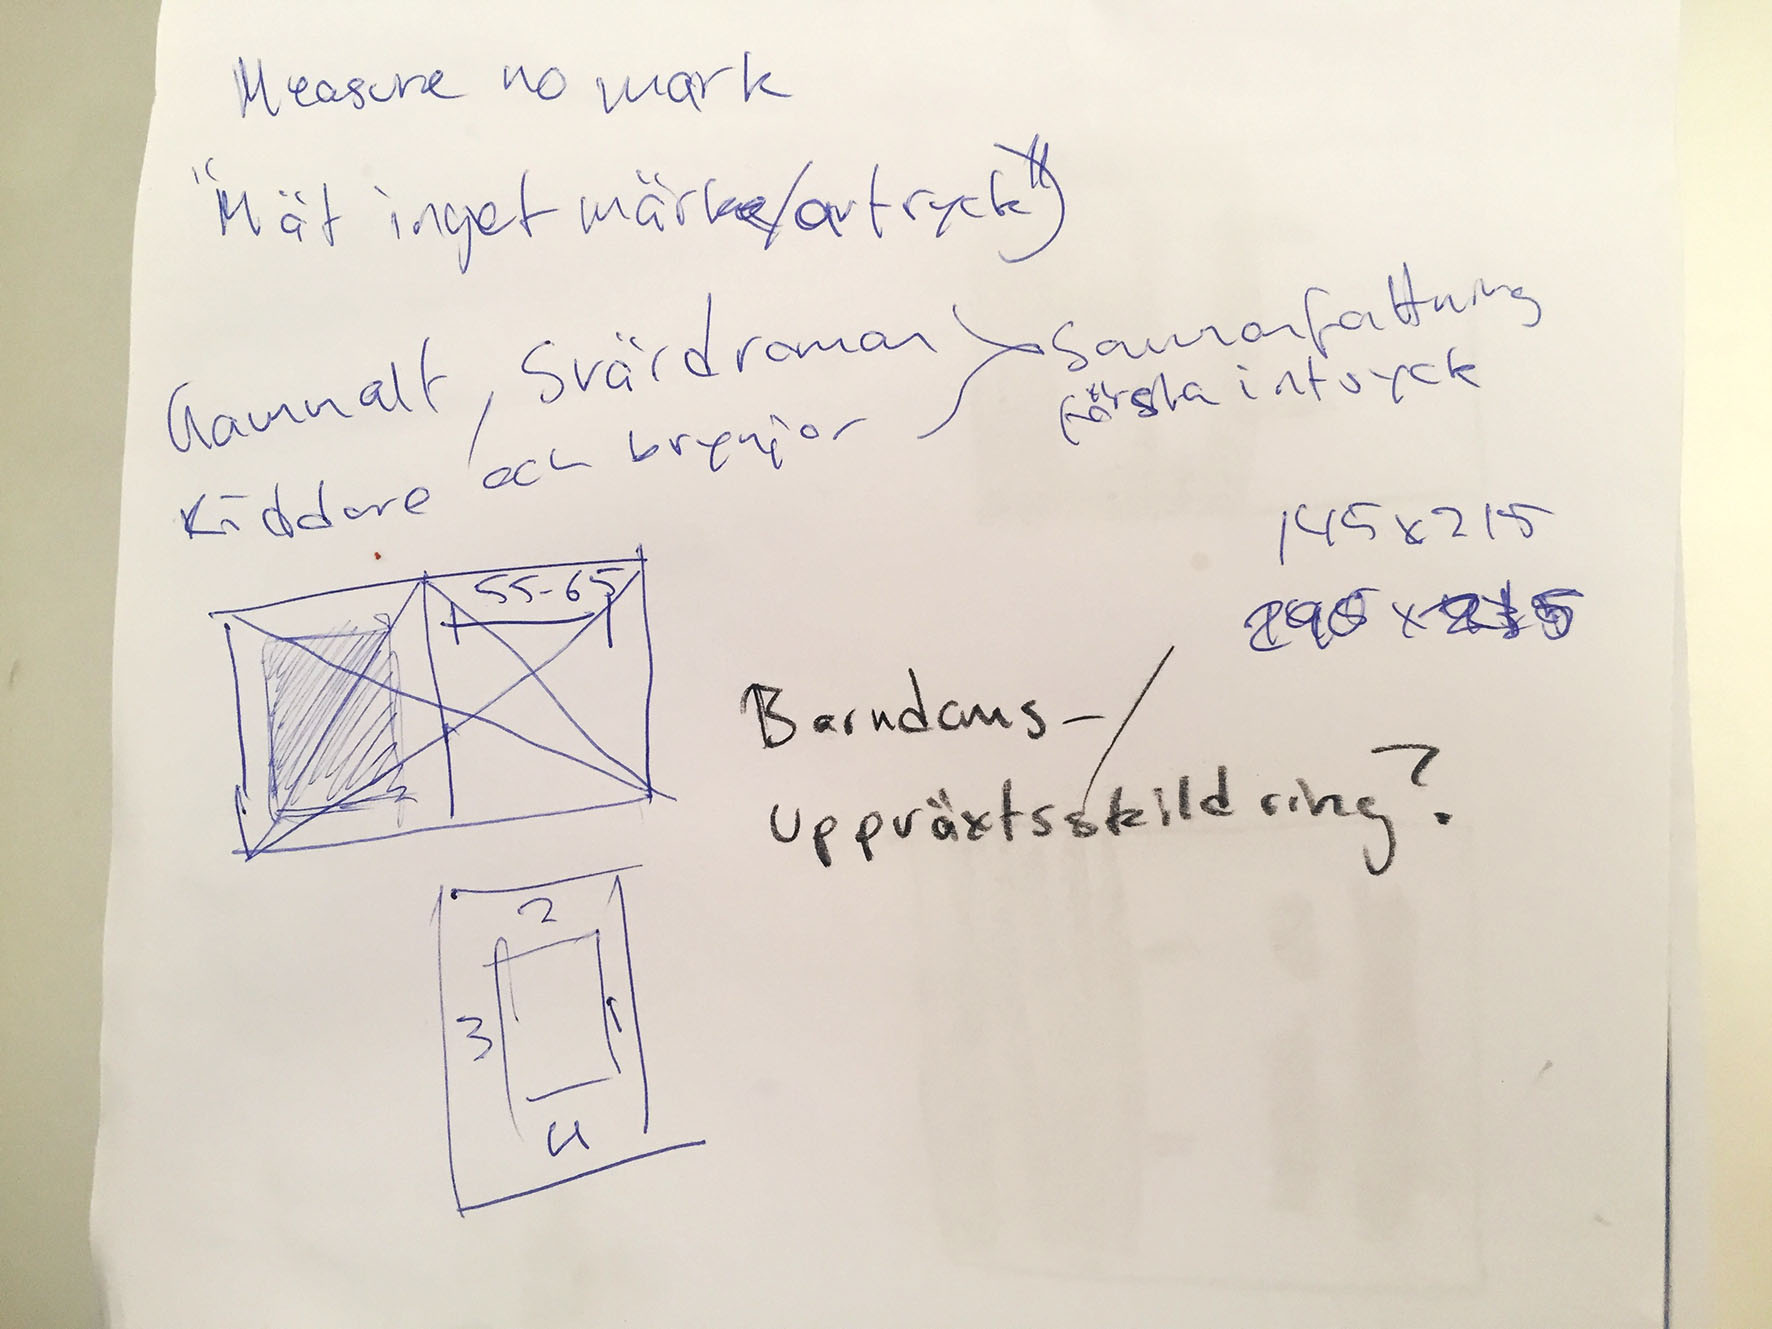 Measure no mark
"Mät inget märke/avtryck")
Gammalt, Svärdroman
Riddare och brynjor
Sammanfattning
första intryck
145x215
290 x 215
55-65
Barndoms-/
uppväxtsskildring?
2
3 1
4